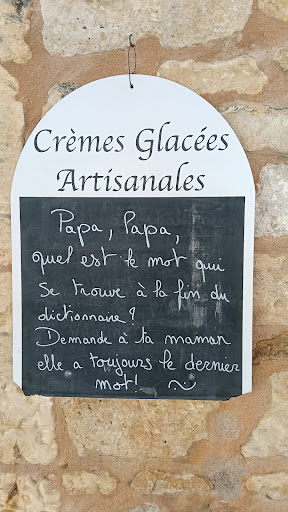 Crèmes Glacées
Artisanales
Papa, Papa,
quel est le mot qui
se trouve à la fin du
dictionnaire ?
Demande à ta maman
elle a toujours le dernier
mot !